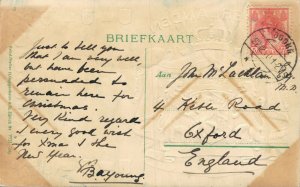 BRIEFKAART
Just to tell you
that I am very well,
but have been
persuaded to
remain here for
Christmas.
Very kind regard
& very good wish
for Xmas & the
New Year.
Aan
4 Keble Road
Oxford
England